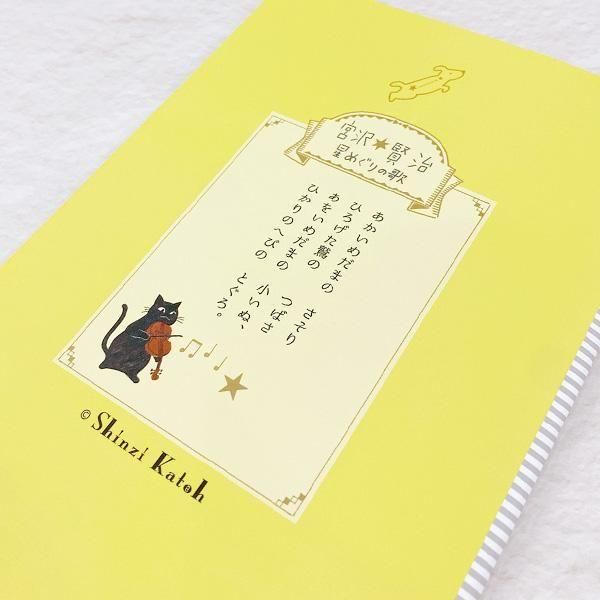 宮沢★賢治
星めぐりの歌
あかいめだまの さそり
ひろげた鷲の つばさ
あをいめだまの 小いぬ、
ひかりのへびの とぐろ。
© Shinzi Katoh